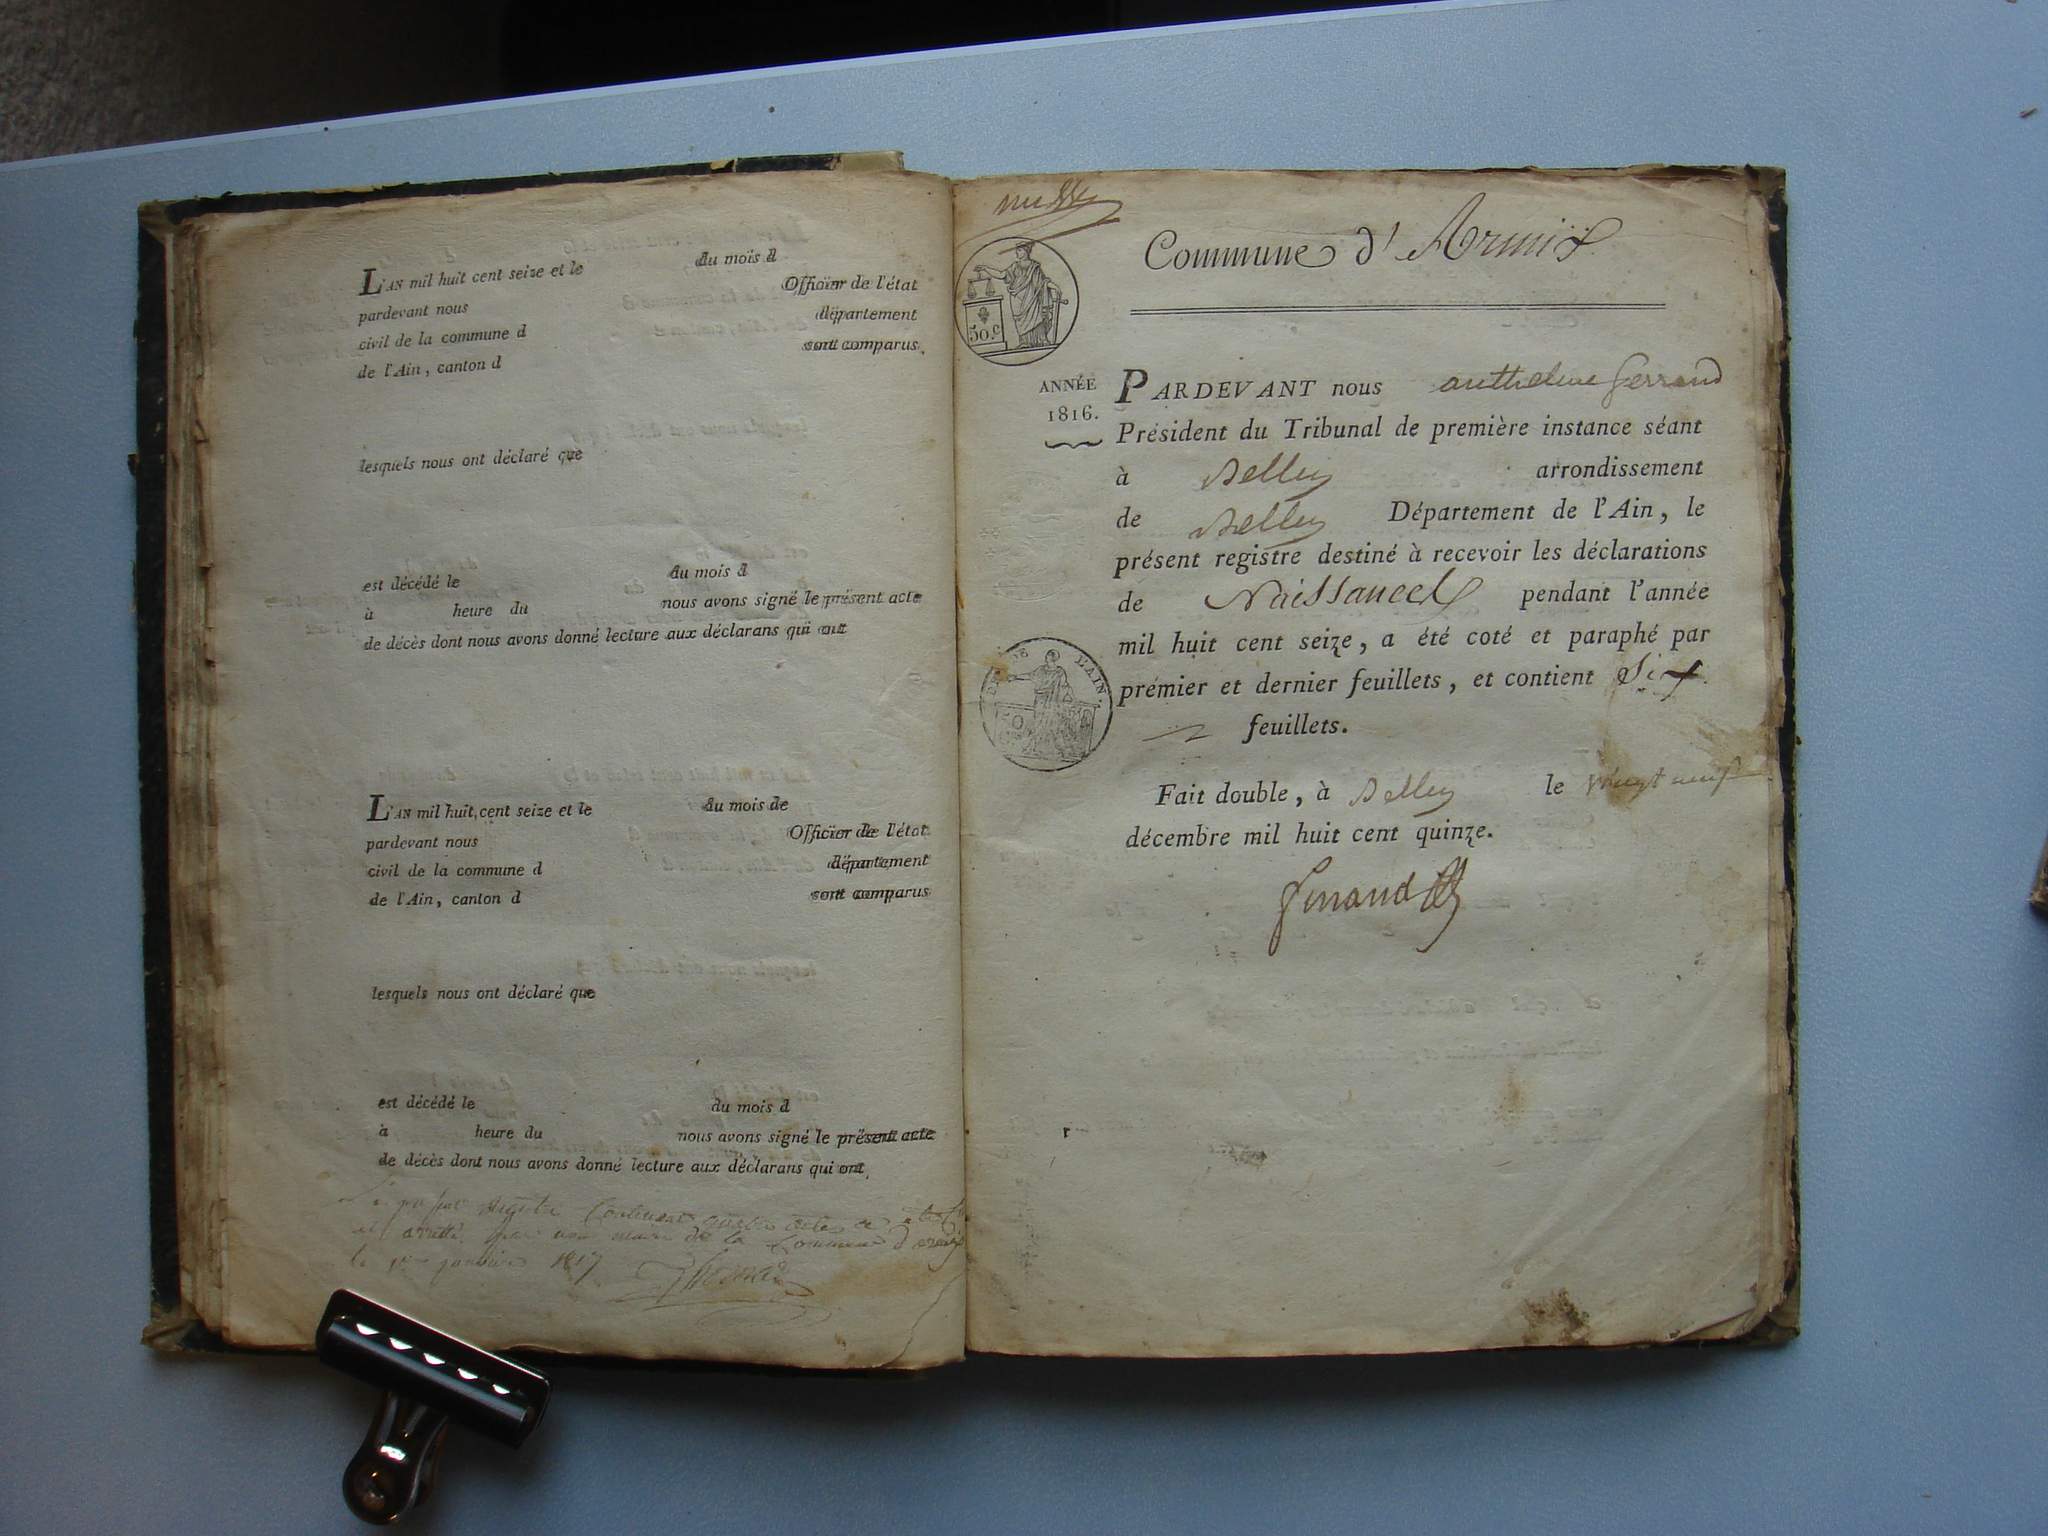 L'AN mil huit cent seize et le du mois d
pardevant nous Officier de l'état
civil de la commune d département
de l'Ain, canton d sont comparus
lesquels nous ont déclaré que
est décédé le du mois d
à heure du nous avons signé le présent acte
de décès dont nous avons donné lecture aux déclarans qui ont
L'AN mil huit cent seize et le du mois de
pardevant nous Officier de l'état
civil de la commune d département
de l'Ain, canton d sont comparus
lesquels nous ont déclaré que
est décédé le du mois d
à heure du nous avons signé le présent acte
de décès dont nous avons donné lecture aux déclarans qui ont
registre contenant quatre actes
et arrêté par nous maire de la Commune d'armix
le 1er janvier 1817
Commune d'Armix
50 c
ANNÉE
1816.
PARDEVANT nous anthelme ferrand
Président du Tribunal de première instance séant
à Belley arrondissement
de Belley Département de l'Ain, le
présent registre destiné à recevoir les déclarations
de Naissances pendant l'année
mil huit cent seize, a été coté et paraphé par
premier et dernier feuillets, et contient Six
feuillets.
L'AIN
50
Fait double, à Belley le vingt neuf
décembre mil huit cent quinze.
ferrand